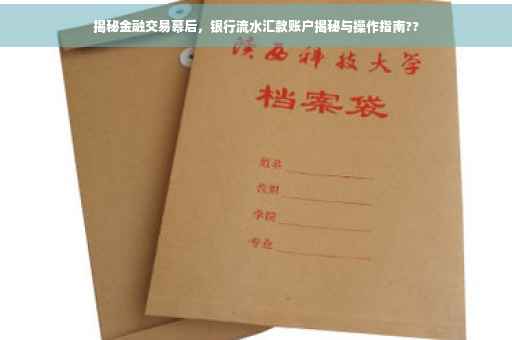 揭秘金融交易幕后，银行流水汇款账户揭秘与操作指南??
陕西科技大学
档案袋
姓名
学院
专业